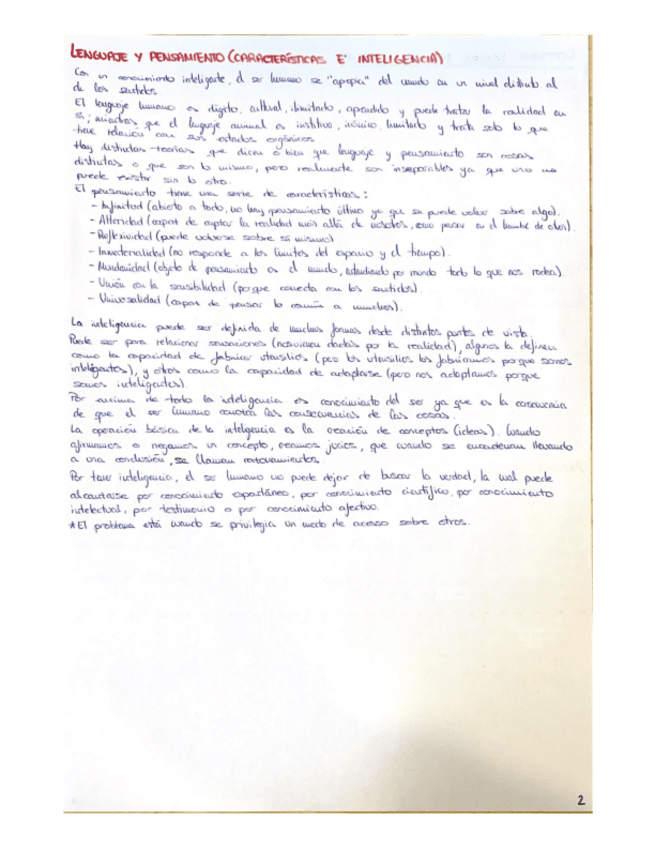 LENGUAJE Y PENSAMIENTO (CARACTERÍSTICAS E INTELIGENCIA)
Con un conocimiento inteligente, el ser humano se "apropia" del mundo en un nivel distinto al
de los sentidos.
El lenguaje humano es dígito, cultural, ilimitado, aprendido y puede tratar la realidad en
sí; mientras que el lenguaje animal es instintivo, icónico, limitado y trata solo lo que
tiene relación con sus estados orgánicos.
Hay distintas teorías que dicen o bien que lenguaje y pensamiento son cosas
distintas o que son lo mismo, pero realmente son inseparables ya que uno no
puede existir sin lo otro.
El pensamiento tiene una serie de características:
- Infinitud (abierto a todo, no hay pensamiento último ya que se puede volver sobre algo).
- Alteridad (capaz de captar la realidad más allá de nosotros, como pensar en el hambre de otros).
- Reflexividad (puede volverse sobre sí mismo)
- Inmaterialidad (no responde a los límites del espacio y el tiempo).
- Mundanidad (objeto de pensamiento es el mundo, entendiendo por mundo todo lo que nos rodea).
- Unión con la sensibilidad (porque conecta con los sentidos).
- Universalidad (capaz de pensar lo común a muchos).
La inteligencia puede ser definida de muchas formas desde distintos puntos de vista.
Puede ser para relacionar sensaciones (nos vienen dadas por la realidad), algunos la definen
como la capacidad de fabricar utensilios (pero los utensilios los fabricamos porque somos
inteligentes), y otros como la capacidad de adaptarse (pero nos adaptamos porque
somos inteligentes).
Por encima de todo la inteligencia es conocimiento del ser ya que es la consecuencia
de que el ser humano conozca las consecuencias de las cosas.
La operación básica de la inteligencia es la creación de conceptos (ideas). Cuando
afirmamos o negamos un concepto, creamos juicios, que cuando se encadenan llevando
a una conclusión, se llaman razonamientos.
Por tener inteligencia, el ser humano no puede dejar de buscar la verdad, la cual puede
alcanzarse por conocimiento espontáneo, por conocimiento científico, por conocimiento
intelectual, por testimonio o por conocimiento afectivo.
*El problema está cuando se privilegia un modo de acceso sobre otros.
2